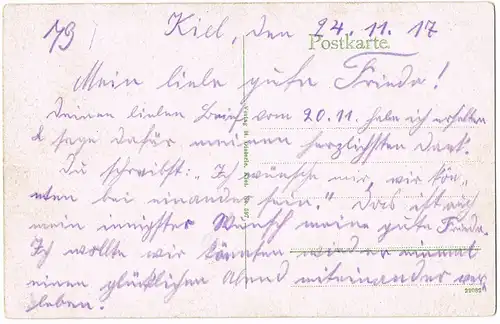 79
Kiel, den 24.11.17
Postkarte.
Mein liebe gute Frieda!
Deinen lieben Brief vom 20.11. habe ich erhalten
& sage dafür meinen herzlichsten Dank.
Du schreibst: "Ich wünsche mir, wir kön=
nten bei einander sein." Das ist auch
mein innigster Wunsch meine gute Frieda.
Ich wollte wir könnten wieder einmal
einen glücklichen Abend miteinander ver
leben.